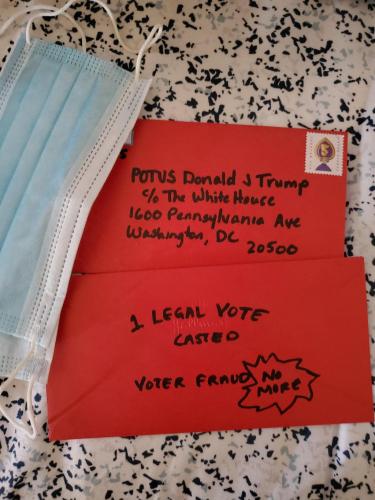 POTUS Donald J Trump
c/o The White House
1600 Pennsylvania Ave
Washington, DC
20500
1 LEGAL VOTE
CASTED
VOTER FRAUD NO
MORE